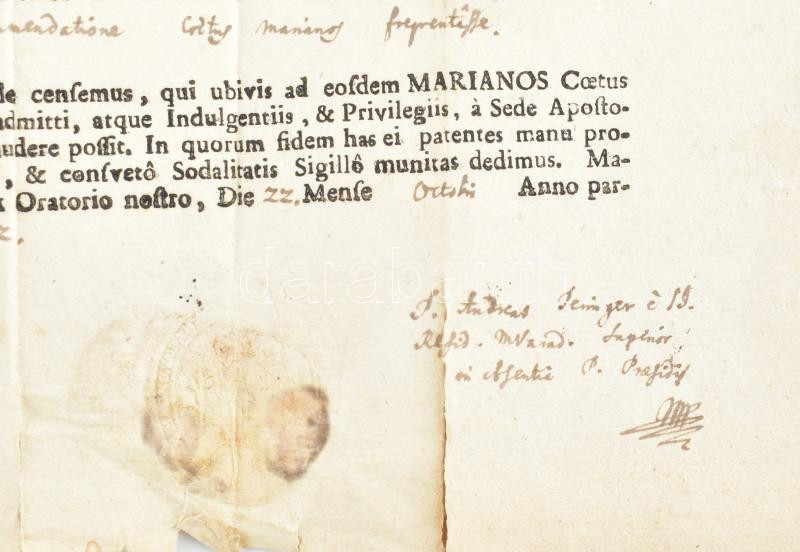 mendatione Cœtus marianos
de cenſemus, qui ubivis ad eoſdem MARIANOS Cœtus
admitti, atque Indulgentiis, & Privilegiis, à Sede Apoſto-
audere poſſit. In quorum fidem has ei patentes manu pro-
, & conſvetô Sodalitatis Sigillô munitas dedimus. Ma-
x Oratorio noſtro, Die 22. Menſe Octobris Anno par-
2.
P. Andreas è SJ.
Resid. Superior
in absentia P. Præsidis
darabanth